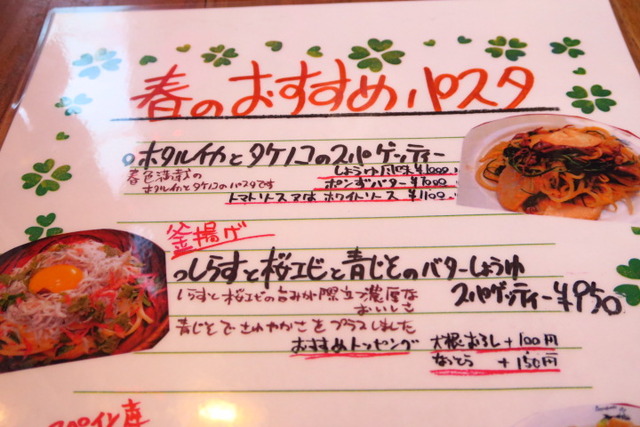 春のおすすめパスタ
○ホタルイカとタケノコのスパゲッティー
春色満載の
ホタルイカとタケノコのパスタです
しょうゆ風味 ¥1000
ポンずバター ¥1000
トマトソース又はホワイトソース ¥1100
釜揚げ
○しらすと桜エビと青じそのバターしょうゆ
スパゲッティー ¥950
しらすと桜エビの旨みが際立つ濃厚な
おいしさ
青じそでさわやかさをプラスしました
おすすめトッピング 大根おろし +100円
なっとう +150円
スペイン産